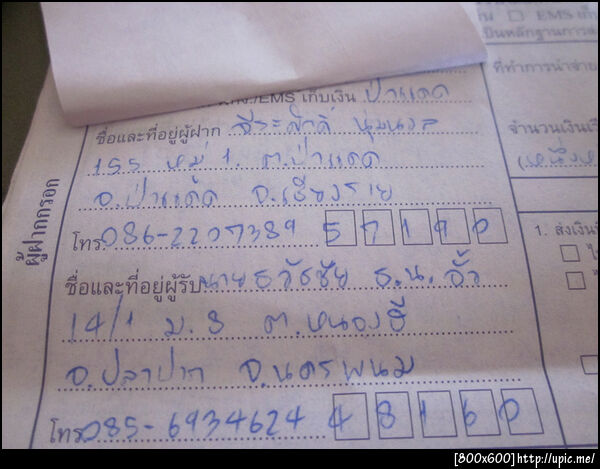 EMS
เป็นหลักฐานการ
/EMS เก็บเงิน ป่าแดด
ที่ทำการนำจ่าย
ชื่อและที่อยู่ผู้ฝาก วีระศักดิ์ นุ่มนวล
จำนวนเงิน
155 หมู่ 1. ต.ป่าแดด
อ.ป่าแด้ด จ.เชียงราย
ผู้ฝากกรอก
โทร. 086-2207389 57190
1. ส่งเงิน
ชื่อและที่อยู่ผู้รับ นายธวัชชัย ธ.น.
14/1 ม.8 ต.หนองฮี
อ.ปลาปาก จ.นครพนม
โทร. 085-6934624 48160
[800x600]http://upic.me/